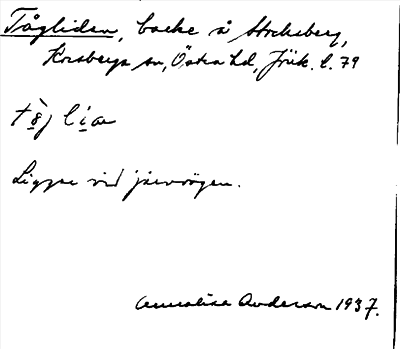 Tågliden, backe å Stocksberg,
Korsberga sn, Östra hd, Jönk. l. 79
Ligger vid järnvägen.
Annalisa Anderson 1937.